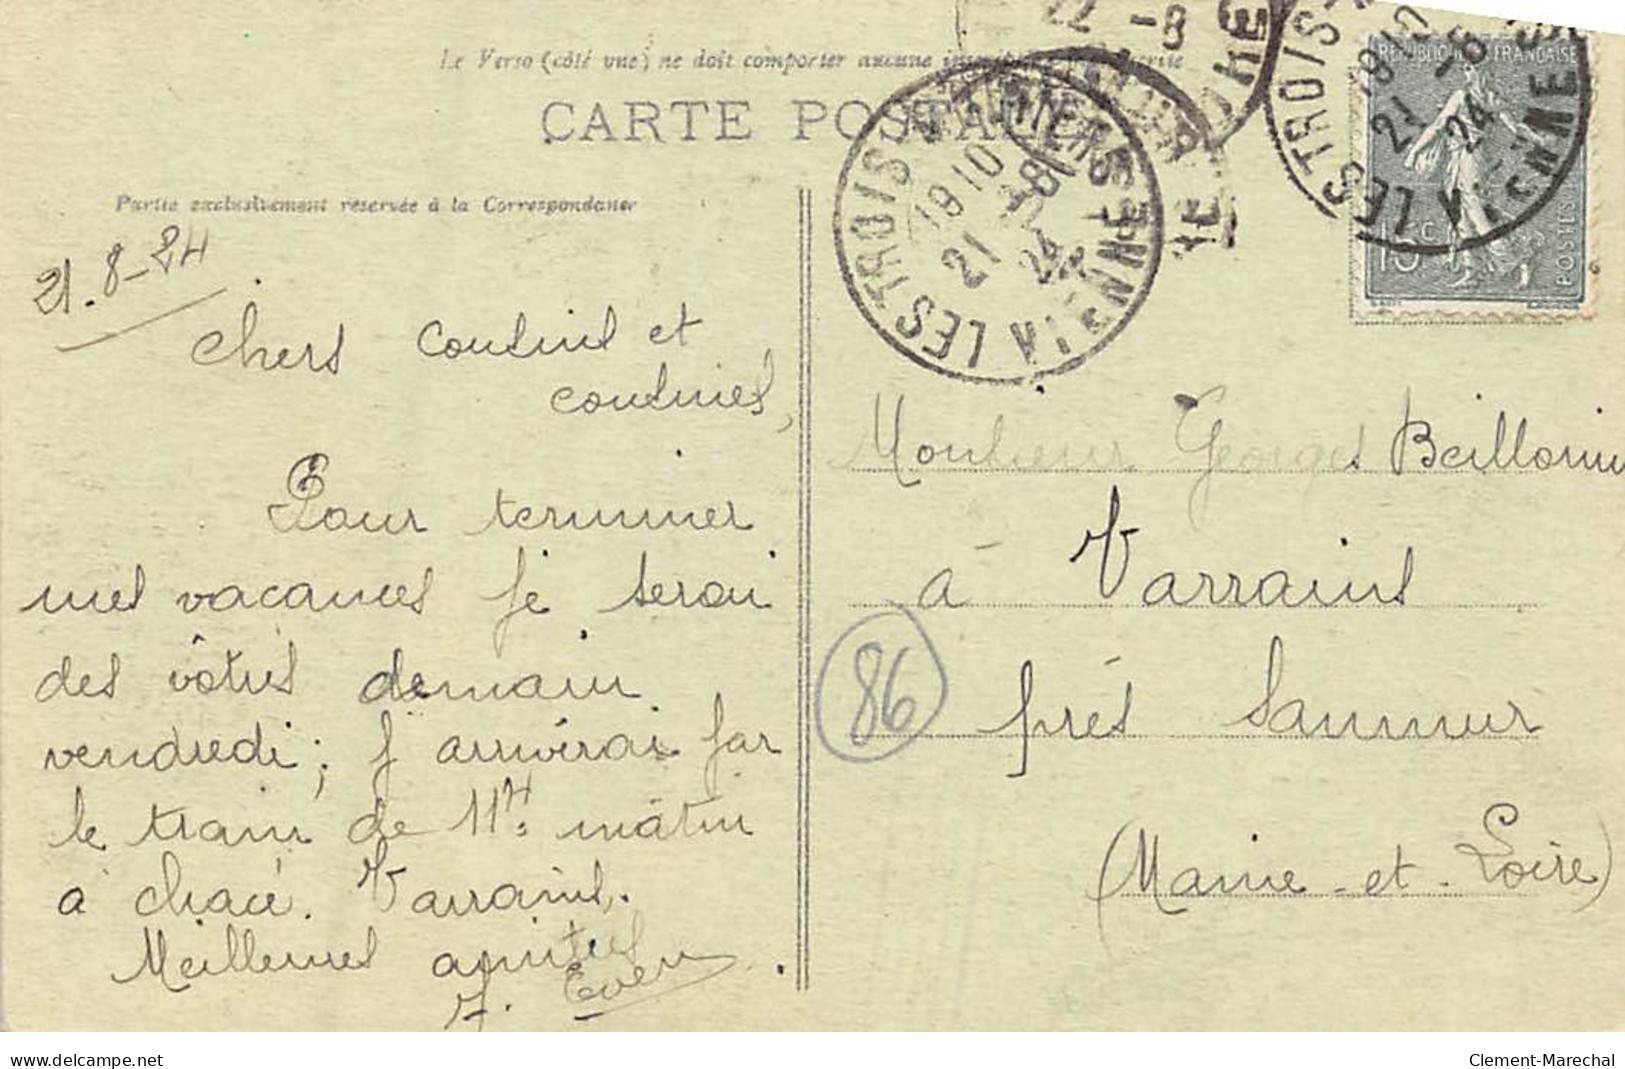 Le Verso (côté vue) ne doit comporter aucune
CARTE POSTALE
Partie exclusivement réservée à la Correspondance
21-8-24
Chers Cousins et
cousines,
Pour terminer
mes vacances je serai
des vôtres demain
vendredi ; j arriverai par
le train de 11H: matin
à chacé. Varrains.
Meilleures amitiés
Y. Even
LES TROIS MOUTIERS
VIENNE
19 10
21 -8
24
22 -8
LES TROIS
VIENNE
19 10
21 -8
24
REPUBLIQUE FRANÇAISE
15c
POSTES
Monsieur Georges Beillonin
à Varrains
près Saumur
(Maine-et-Loire)
86
www.delcampe.net
Clement-Marechal